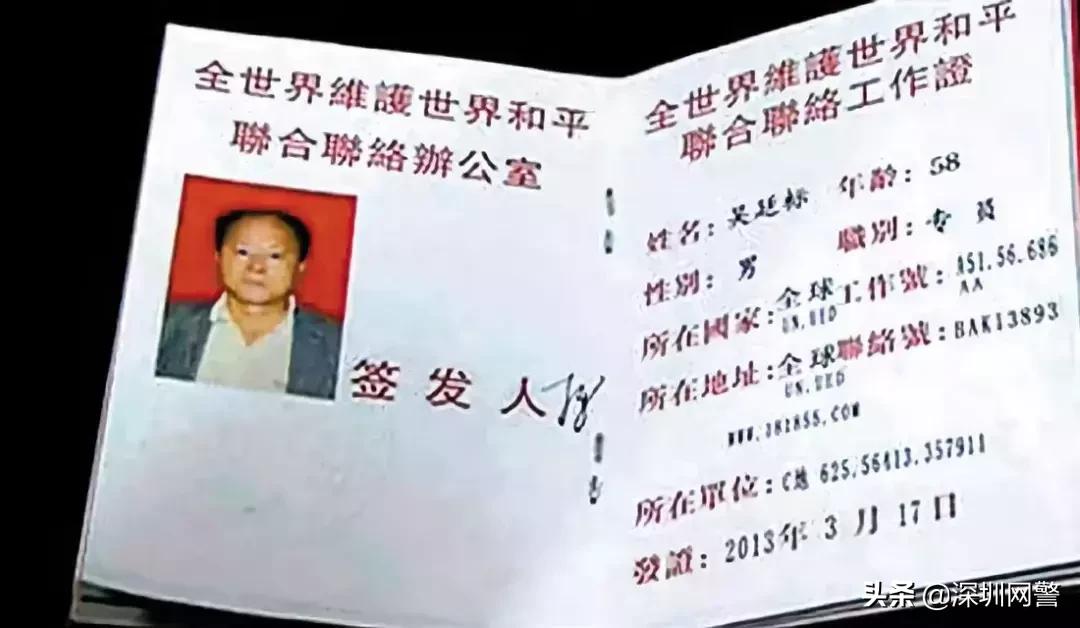 全世界維護世界和平
聯合聯絡辦公室
签发人
全世界維護世界和平
聯合聯絡工作證
姓名：吴廷标 年齡：58
性别：男 職别：专员
所在國家：全球工作號：A51.56.686
UN.UED AA
所在地址：全球聯絡號：BAK13893
UN.UED
WWW.381855.COM
所在單位：C地 625.56413.357911
發證：2013年3月17日
头条 @深圳网警